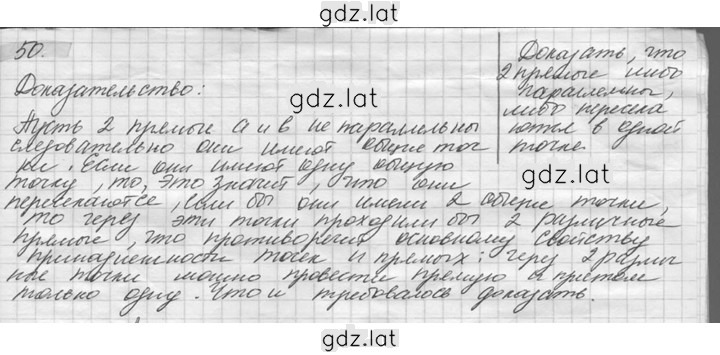 gdz.lat
50.
Доказать, что
2 прямые либо
параллельны,
либо пересека
ются в одной
точке.
Доказательство:
gdz.lat
Пусть 2 прямые а и в не параллельны
следовательно они имеют общие точ
ки. Если они имеют одну общую
точку, то, это значит, что они
gdz.lat
пересекаются, если бы они имели 2 общие точки,
то через эти точки проходили бы 2 различные
прямые, что противоречит основному свойству
принадлежности точек и прямых: через 2 разли
ные точки можно провести прямую и притом
только одну. Что и требовалось доказать.
gdz.lat